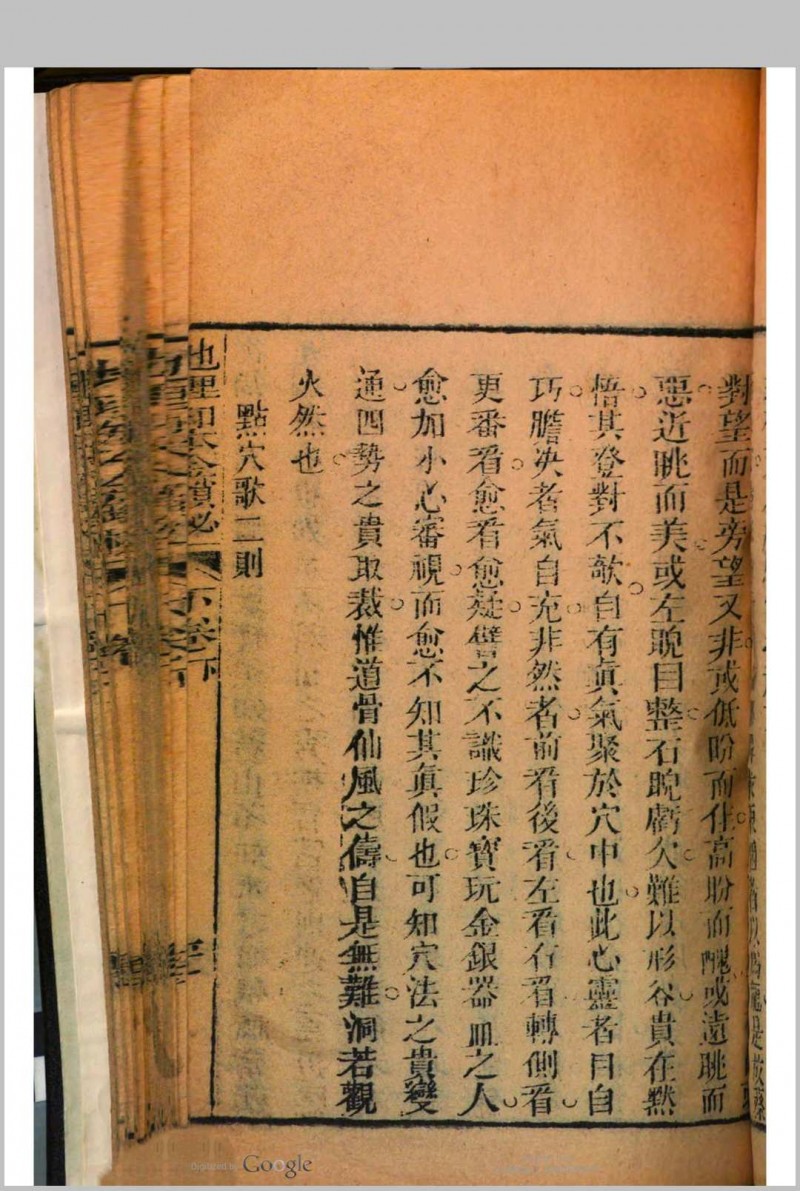 對望而是旁望又非或低盼而佳高盼而醜或遠眺而
惡近眺而美或左睨目整右睨虧欠難以形容貴在默
悟其登對不欹自有眞氣聚於穴中也此心靈者目自
巧膽決者氣自充非然者前看後看左看右看轉側看
更番看愈看愈疑譬之不識珍珠寶玩金銀器皿之人
愈加小心審視而愈不知其眞假也可知穴法之貴變
通四勢之貴取裁惟道骨仙風之儔自是無難洞若觀
火然也
點穴歌二則
地理知本金鎖秘
下卷下
Digitized by Google